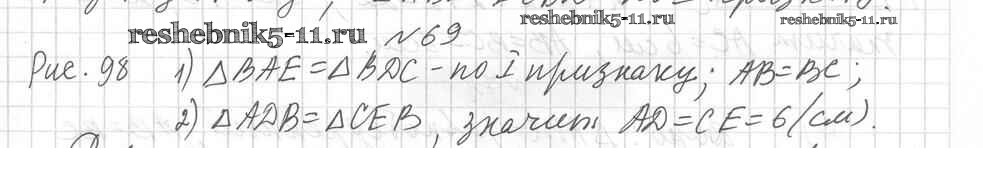 reshebnik5-11.ru
reshebnik5-11.ru
reshebnik5-11.ru
№69
Рис. 98 1) △BAE = △BDC - по I признаку; AB = BC;
2) △ADB = △CEB, значит AD = CE = 6 (см).